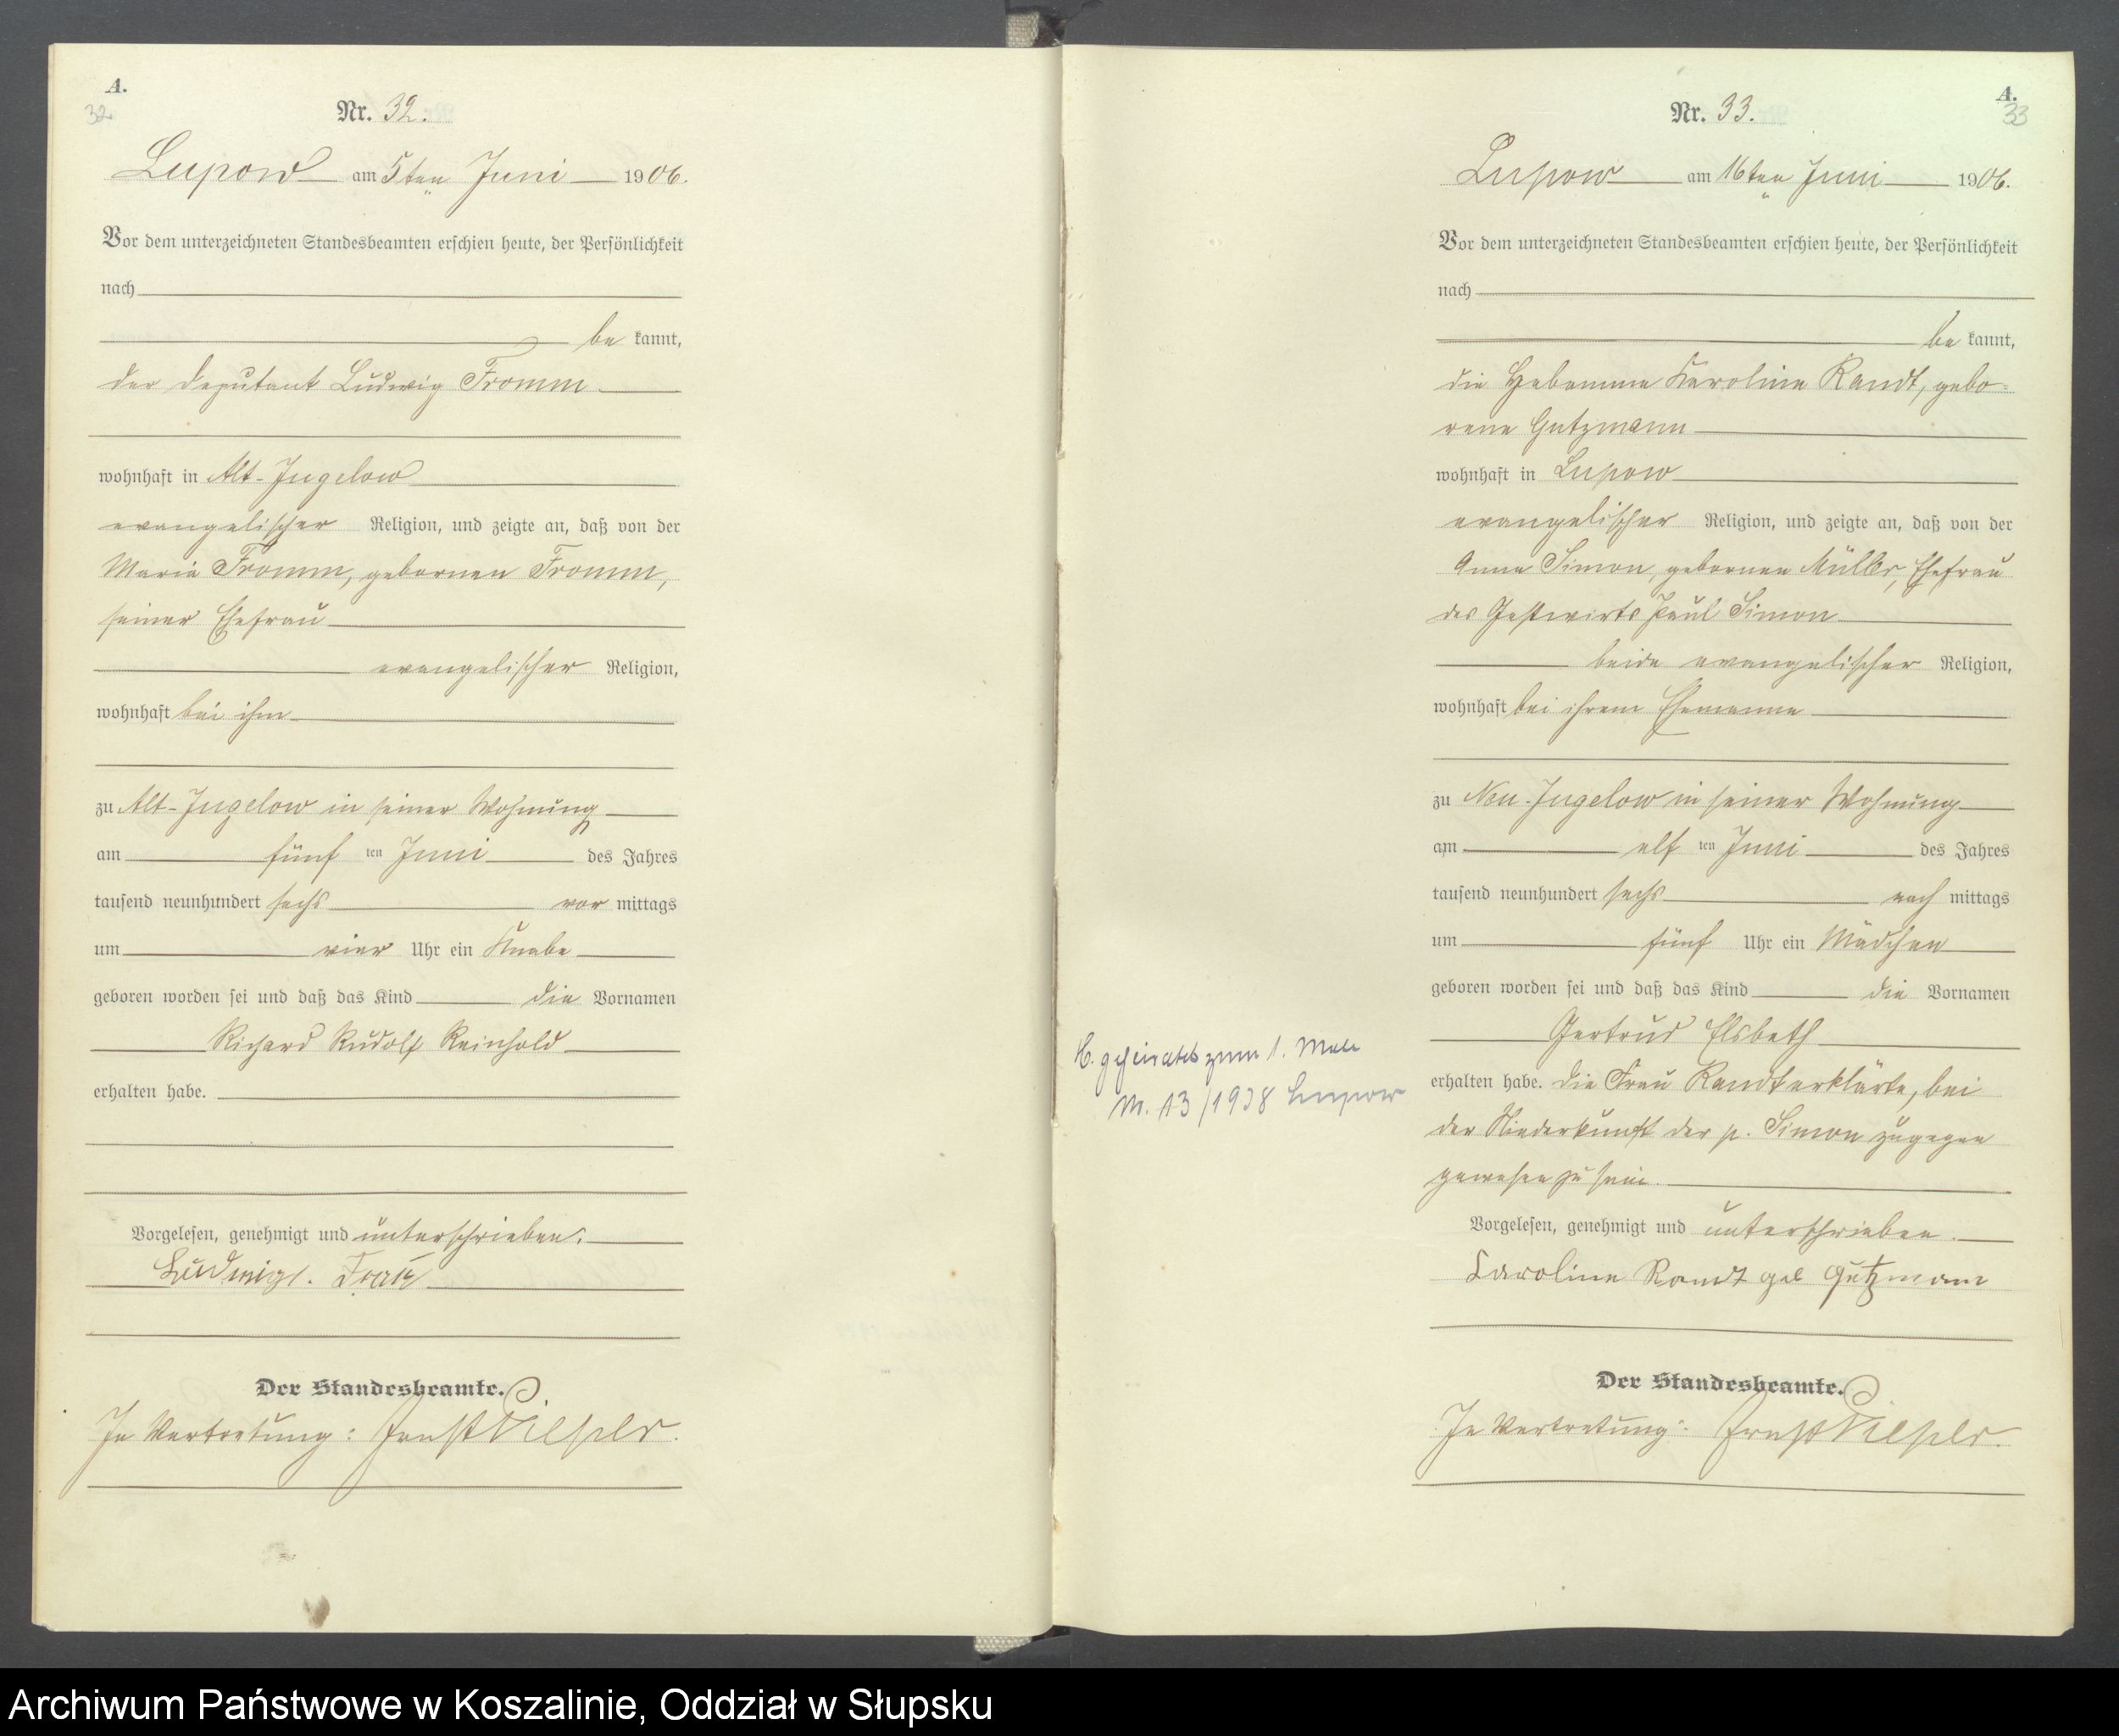 A.
32
Nr. 32.
Lupow am 5ten Juni 1906.
Vor dem unterzeichneten Standesbeamten erschien heute, der Persönlichkeit
nach
be kannt,
der Deputant Ludwig Fromm
wohnhaft in Alt-Jugelow
evangelischer Religion, und zeigte an, daß von der
Maria Fromm, gebornen Fromm,
seiner Ehefrau
evangelischer Religion,
wohnhaft bei ihm
zu Alt-Jugelow in seiner Wohnung
am fünf ten Juni des Jahres
tausend neunhundert sechs vor mittags
um vier Uhr ein Knabe
geboren worden sei und daß das Kind die Vornamen
Richard Rudolf Reinhold
erhalten habe.
Vorgelesen, genehmigt und unterschrieben.
Ludwig
Der Standesbeamte.
In Vertretung: Ernst
A.
33
Nr. 33.
Lupow am 16ten Juni 1906.
Vor dem unterzeichneten Standesbeamten erschien heute, der Persönlichkeit
nach
be kannt,
die Hebamme Karoline Randt, gebo-
rene Gutzmann
wohnhaft in Lupow
evangelischer Religion, und zeigte an, daß von der
Anna Simon, gebornen Müller, Ehefrau
des Gastwirts Paul Simon
beide evangelischer Religion,
wohnhaft bei ihrem Ehemanne
zu Neu-Jugelow in seiner Wohnung
am elf ten Juni des Jahres
tausend neunhundert sechs nach mittags
um fünf Uhr ein Mädchen
geboren worden sei und daß das Kind die Vornamen
Gertrud Elsbeth
erhalten habe. Die Frau Randt erklärte, bei
der Niederkunft der p. Simon zugegen
gewesen zu sein.
Vorgelesen, genehmigt und unterschrieben.
Caroline Randt geb Gutzmann
Der Standesbeamte.
In Vertretung: Ernst
H. geheiratet zum 1. Male
Nr. 13/1938 Lupow
Archiwum Państwowe w Koszalinie, Oddział w Słupsku